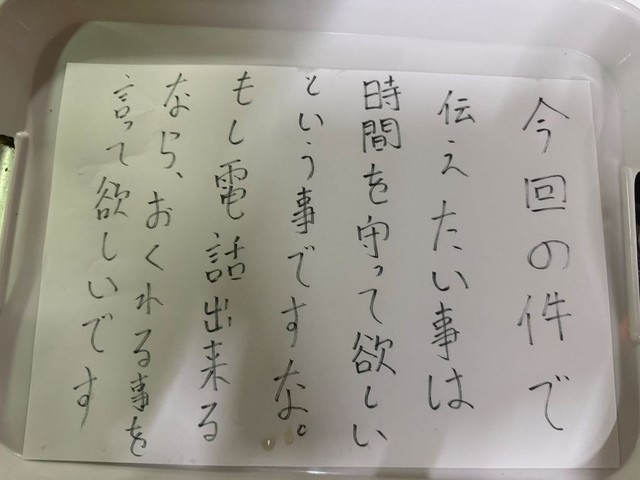 今回の件で
伝えたい事は
時間を守って欲しい
という事ですな。
もし電話出来る
なら、おくれる事を
言って欲しいです